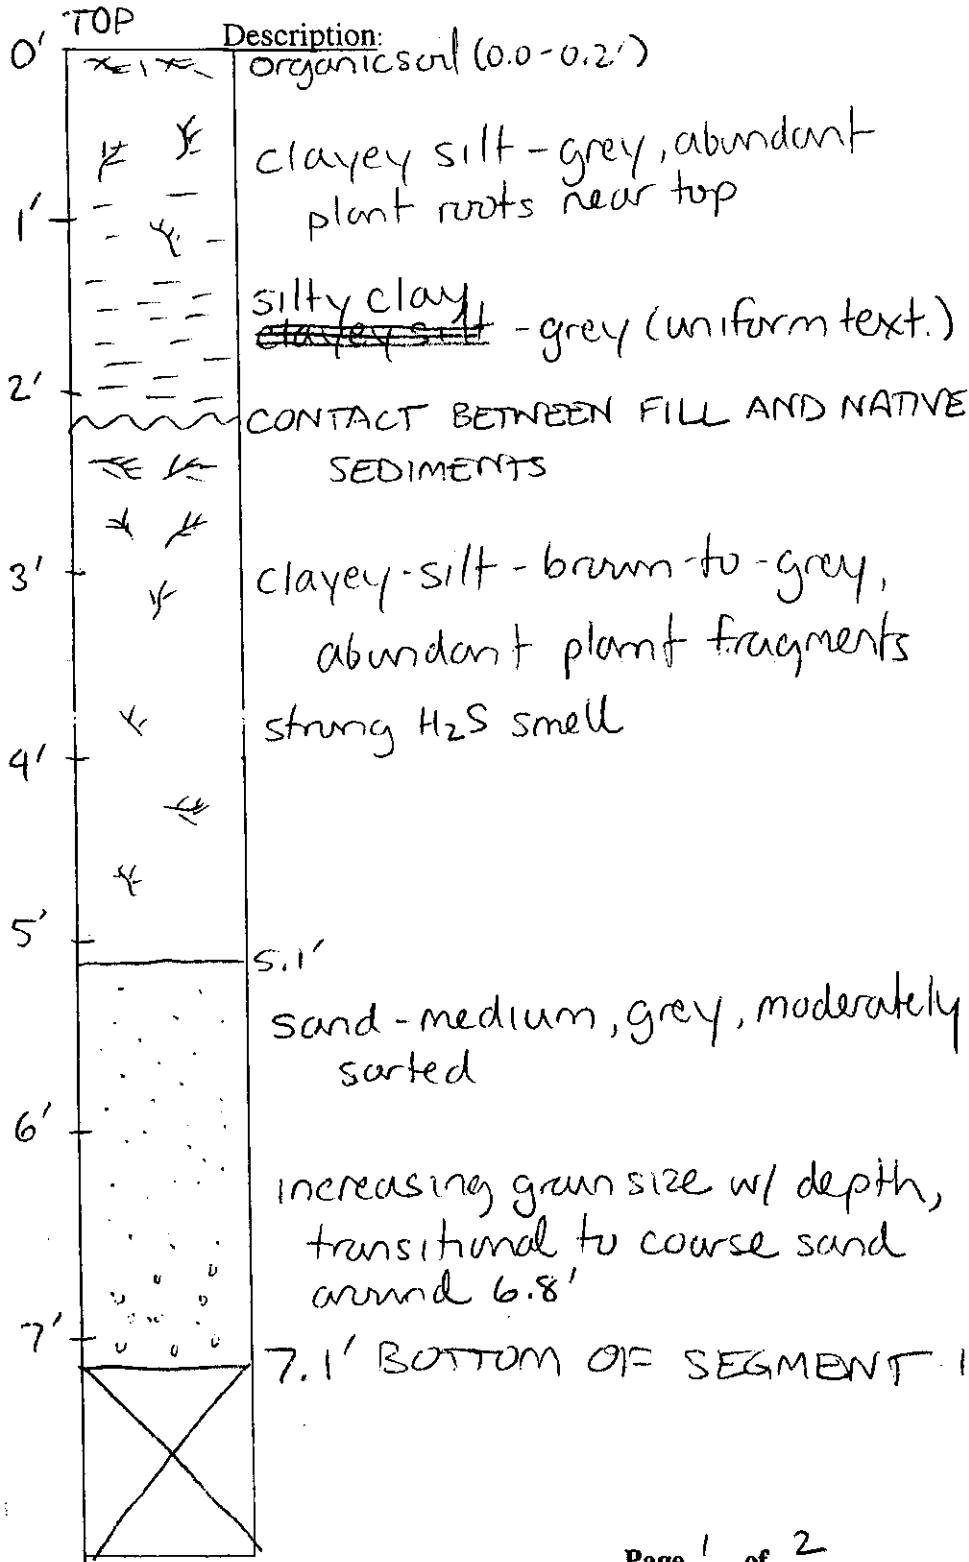 TOP
Description:
0'
organic soil (0.0-0.2')
clayey silt - grey, abundant
plant roots near top
1'
silty clay
clayey silt - grey (uniform text.)
2'
CONTACT BETWEEN FILL AND NATIVE
SEDIMENTS
3'
clayey-silt - brown-to-grey,
abundant plant fragments
strong H₂S smell
4'
5'
5.1'
sand - medium, grey, moderately
sorted
6'
increasing grain size w/ depth,
transitional to coarse sand
around 6.8'
7'
7.1' BOTTOM OF SEGMENT 1
Page 1 of 2